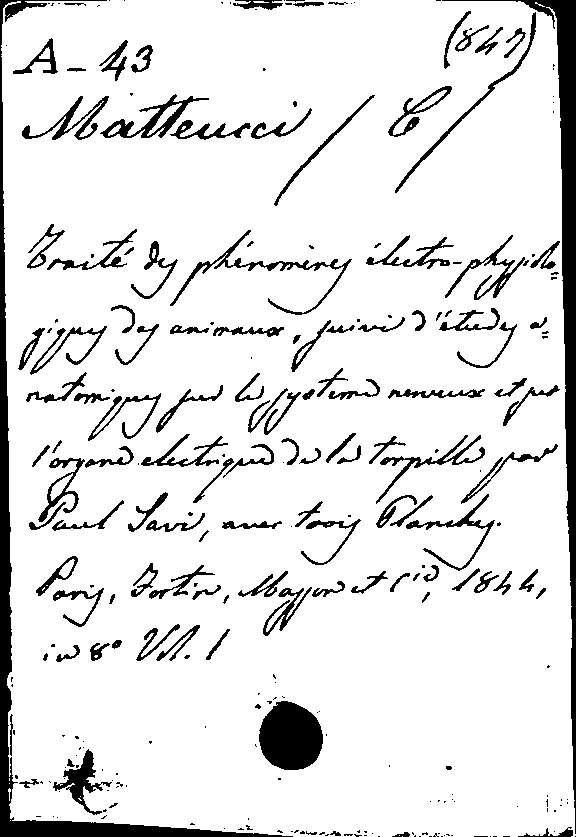 A-43 (847)
Matteucci / C /
Traité des phénomènes électro-physiolo=
giques des animaux, suivi d'études a=
natomiques sur le système nerveux et sur
l'organe electrique de la torpille par
Paul Savi, avec trois Planches.
Paris, Fortin, Masson et Cie, 1844,
in 8° Vol. 1